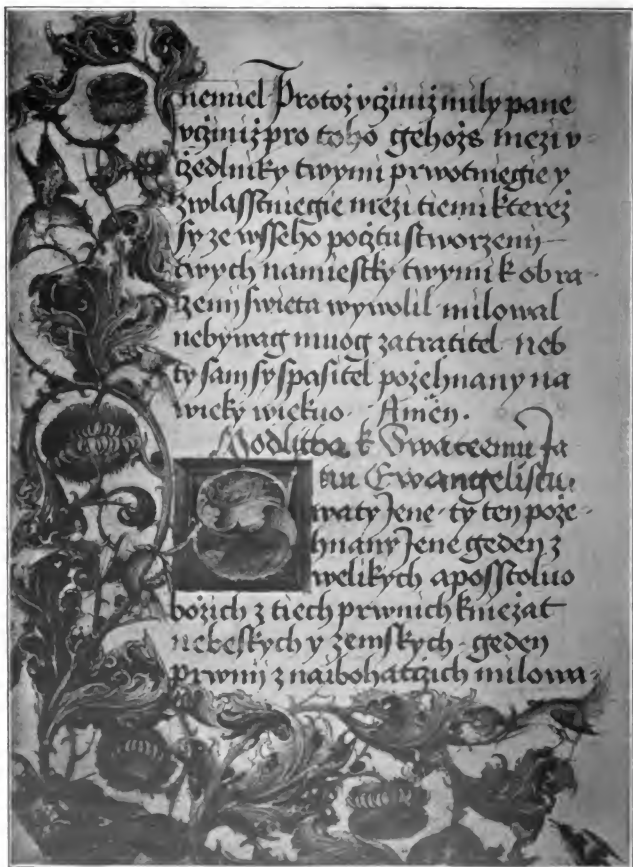 nemiel Protoż vcżiniż mily pane
vcżiniż pro toho gehożs mezi v
żedlniky twymi prwotniegie y
zwlasstniegie mezi tiemi kterez
sy ze wsseho pocżtu stworzenij
twych namiestky twymi k obra
żenij swieta wywolil milowal
nebywag muog zatratitel neb
ty sam sy spasitel pożehnany na
wieky wiekuo. Amen.
Modlitba k Swateemu Ja
nu Ewangelistu.
Swaty Jene ty ten poże
hnany Jene geden z
welikych aposstoluo
bożich z tiech prwnich knieżat
nebeskych y zemskych geden
prwnij z naibohatczich milowa